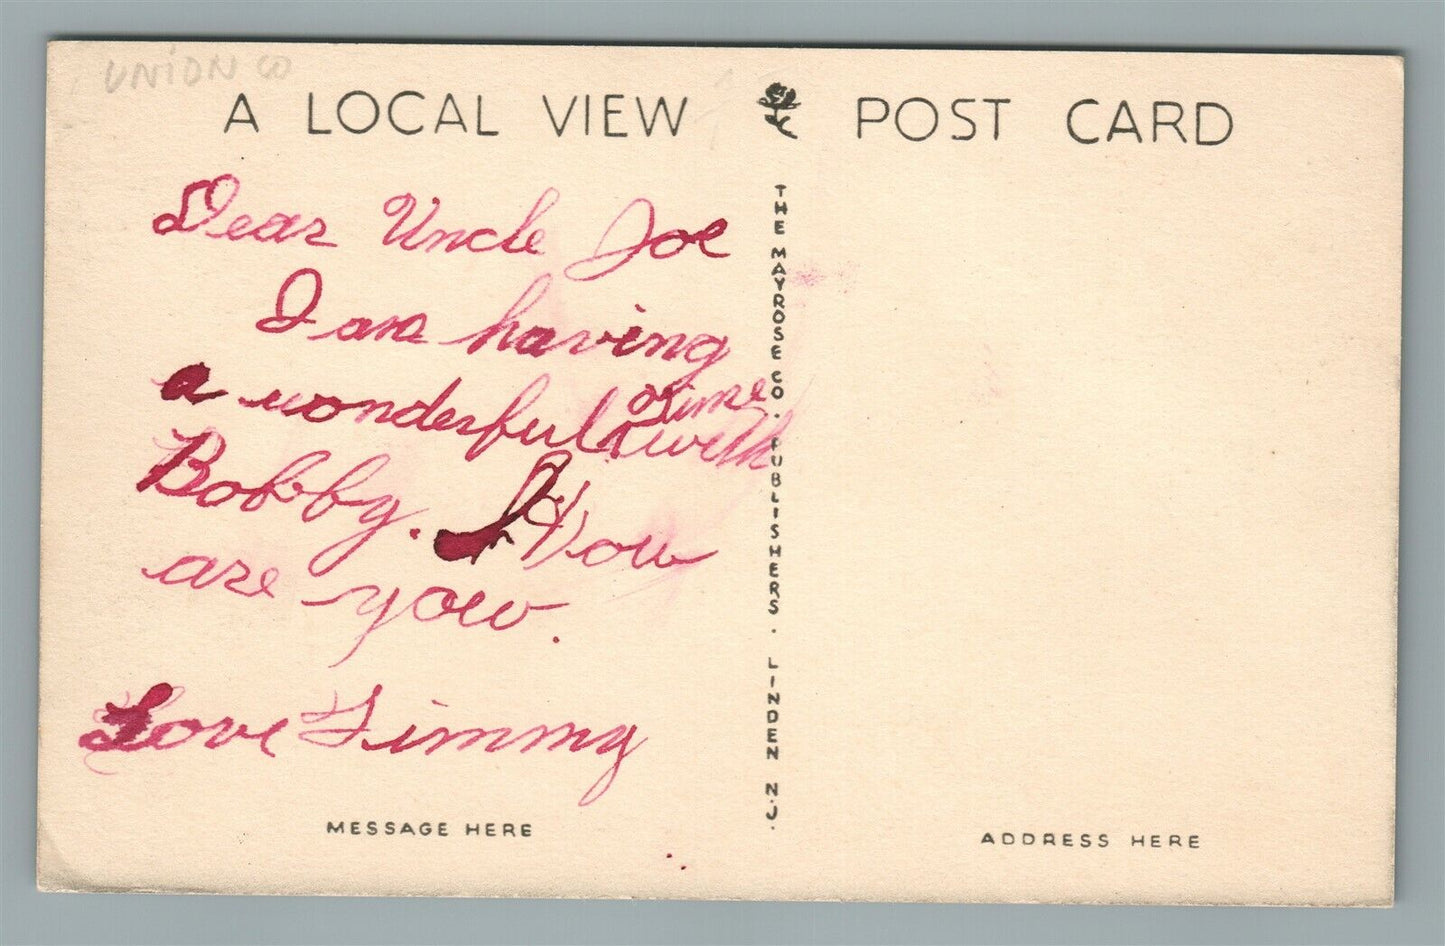 UNION CO
A LOCAL VIEW POST CARD
Dear Uncle Joe
I am having
a wonderful time
with
Bobby. How
are you.
Love Timmy
MESSAGE HERE
THE MAYROSE CO. PUBLISHERS. LINDEN N.J.
ADDRESS HERE